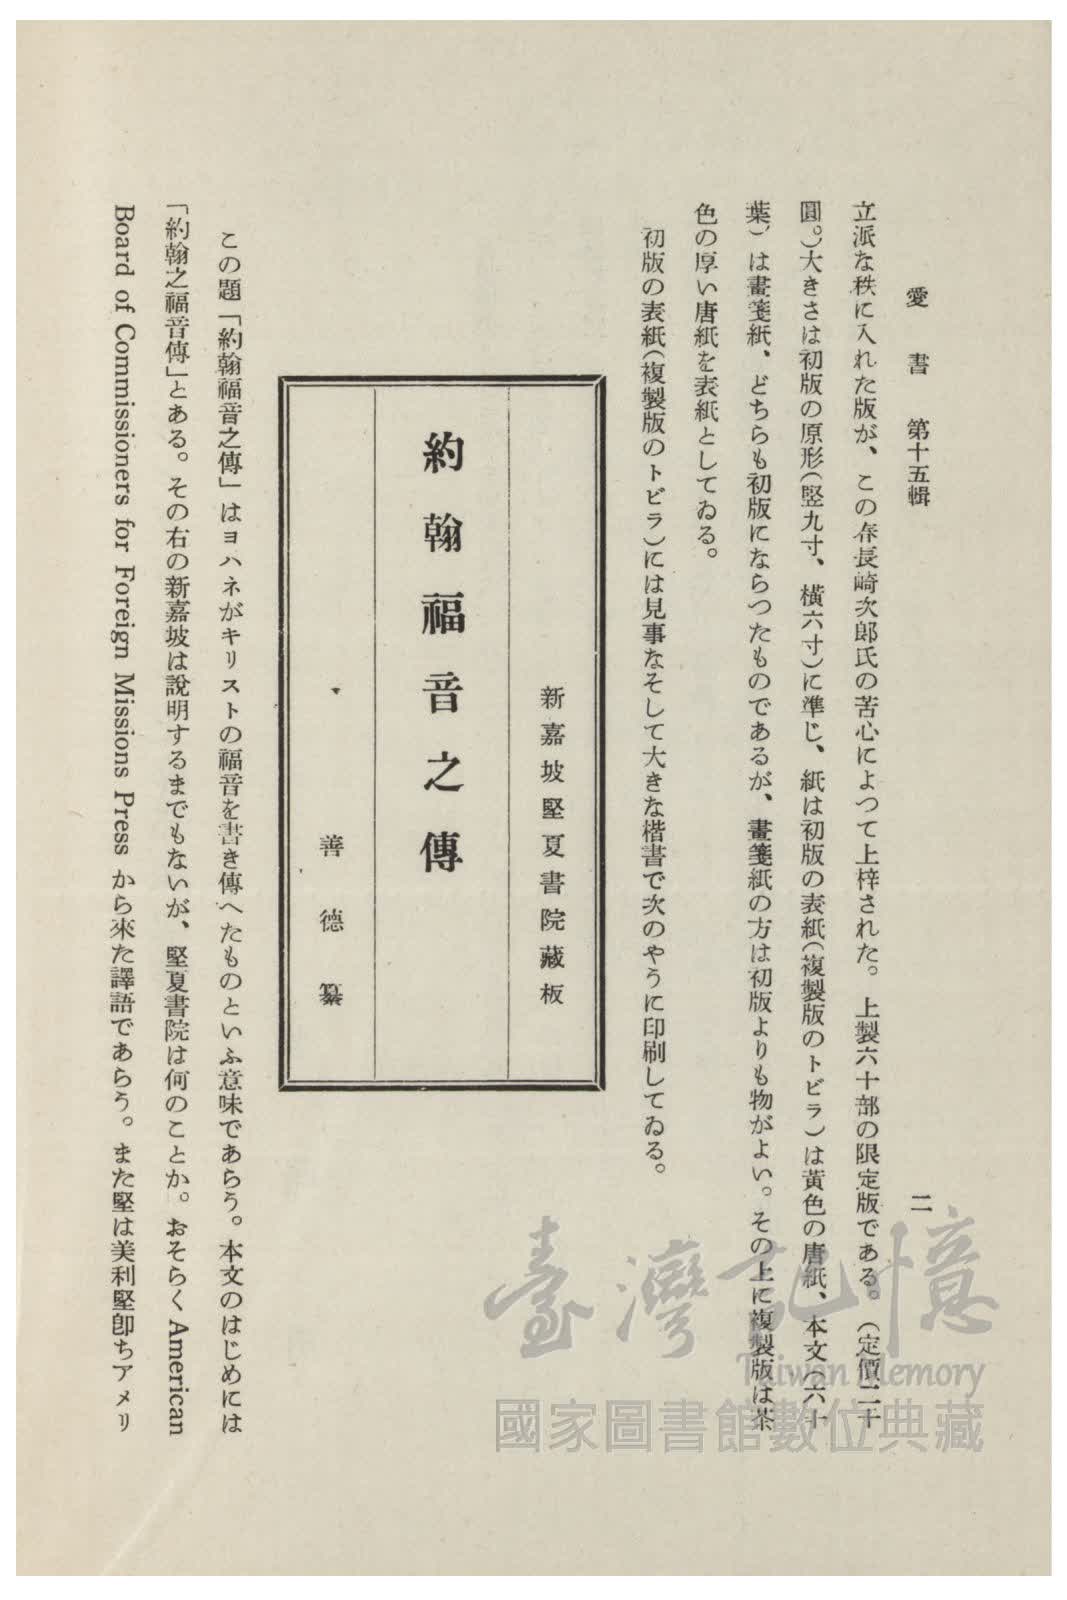 愛書 第十五輯
二
立派な秩に入れた版が、この春長崎次郎氏の苦心によつて上梓された。上製六十部の限定版である。（定價二十
圓。）大きさは初版の原形（竪九寸、横六寸）に準じ、紙は初版の表紙（複製版のトビラ）は黃色の唐紙、本文（六十
葉）は畫箋紙、どちらも初版にならつたものであるが、畫箋紙の方は初版よりも物がよい。その上に複製版は茶
色の厚い唐紙を表紙としてゐる。
初版の表紙（複製版のトビラ）には見事なそして大きな楷書で次のやうに印刷してゐる。
新嘉坡堅夏書院藏板
約翰福音之傳
善德纂
この題「約翰福音之傳」はヨハネがキリストの福音を書き傳へたものといふ意味であらう。本文のはじめには
「約翰之福音傳」とある。その右の新嘉坡は說明するまでもないが、堅夏書院は何のことか。おそらく American
Board of Commissioners for Foreign Missions Press から來た譯語であらう。また堅は美利堅卽ちアメリ
臺灣記憶
Taiwan Memory
國家圖書館數位典藏